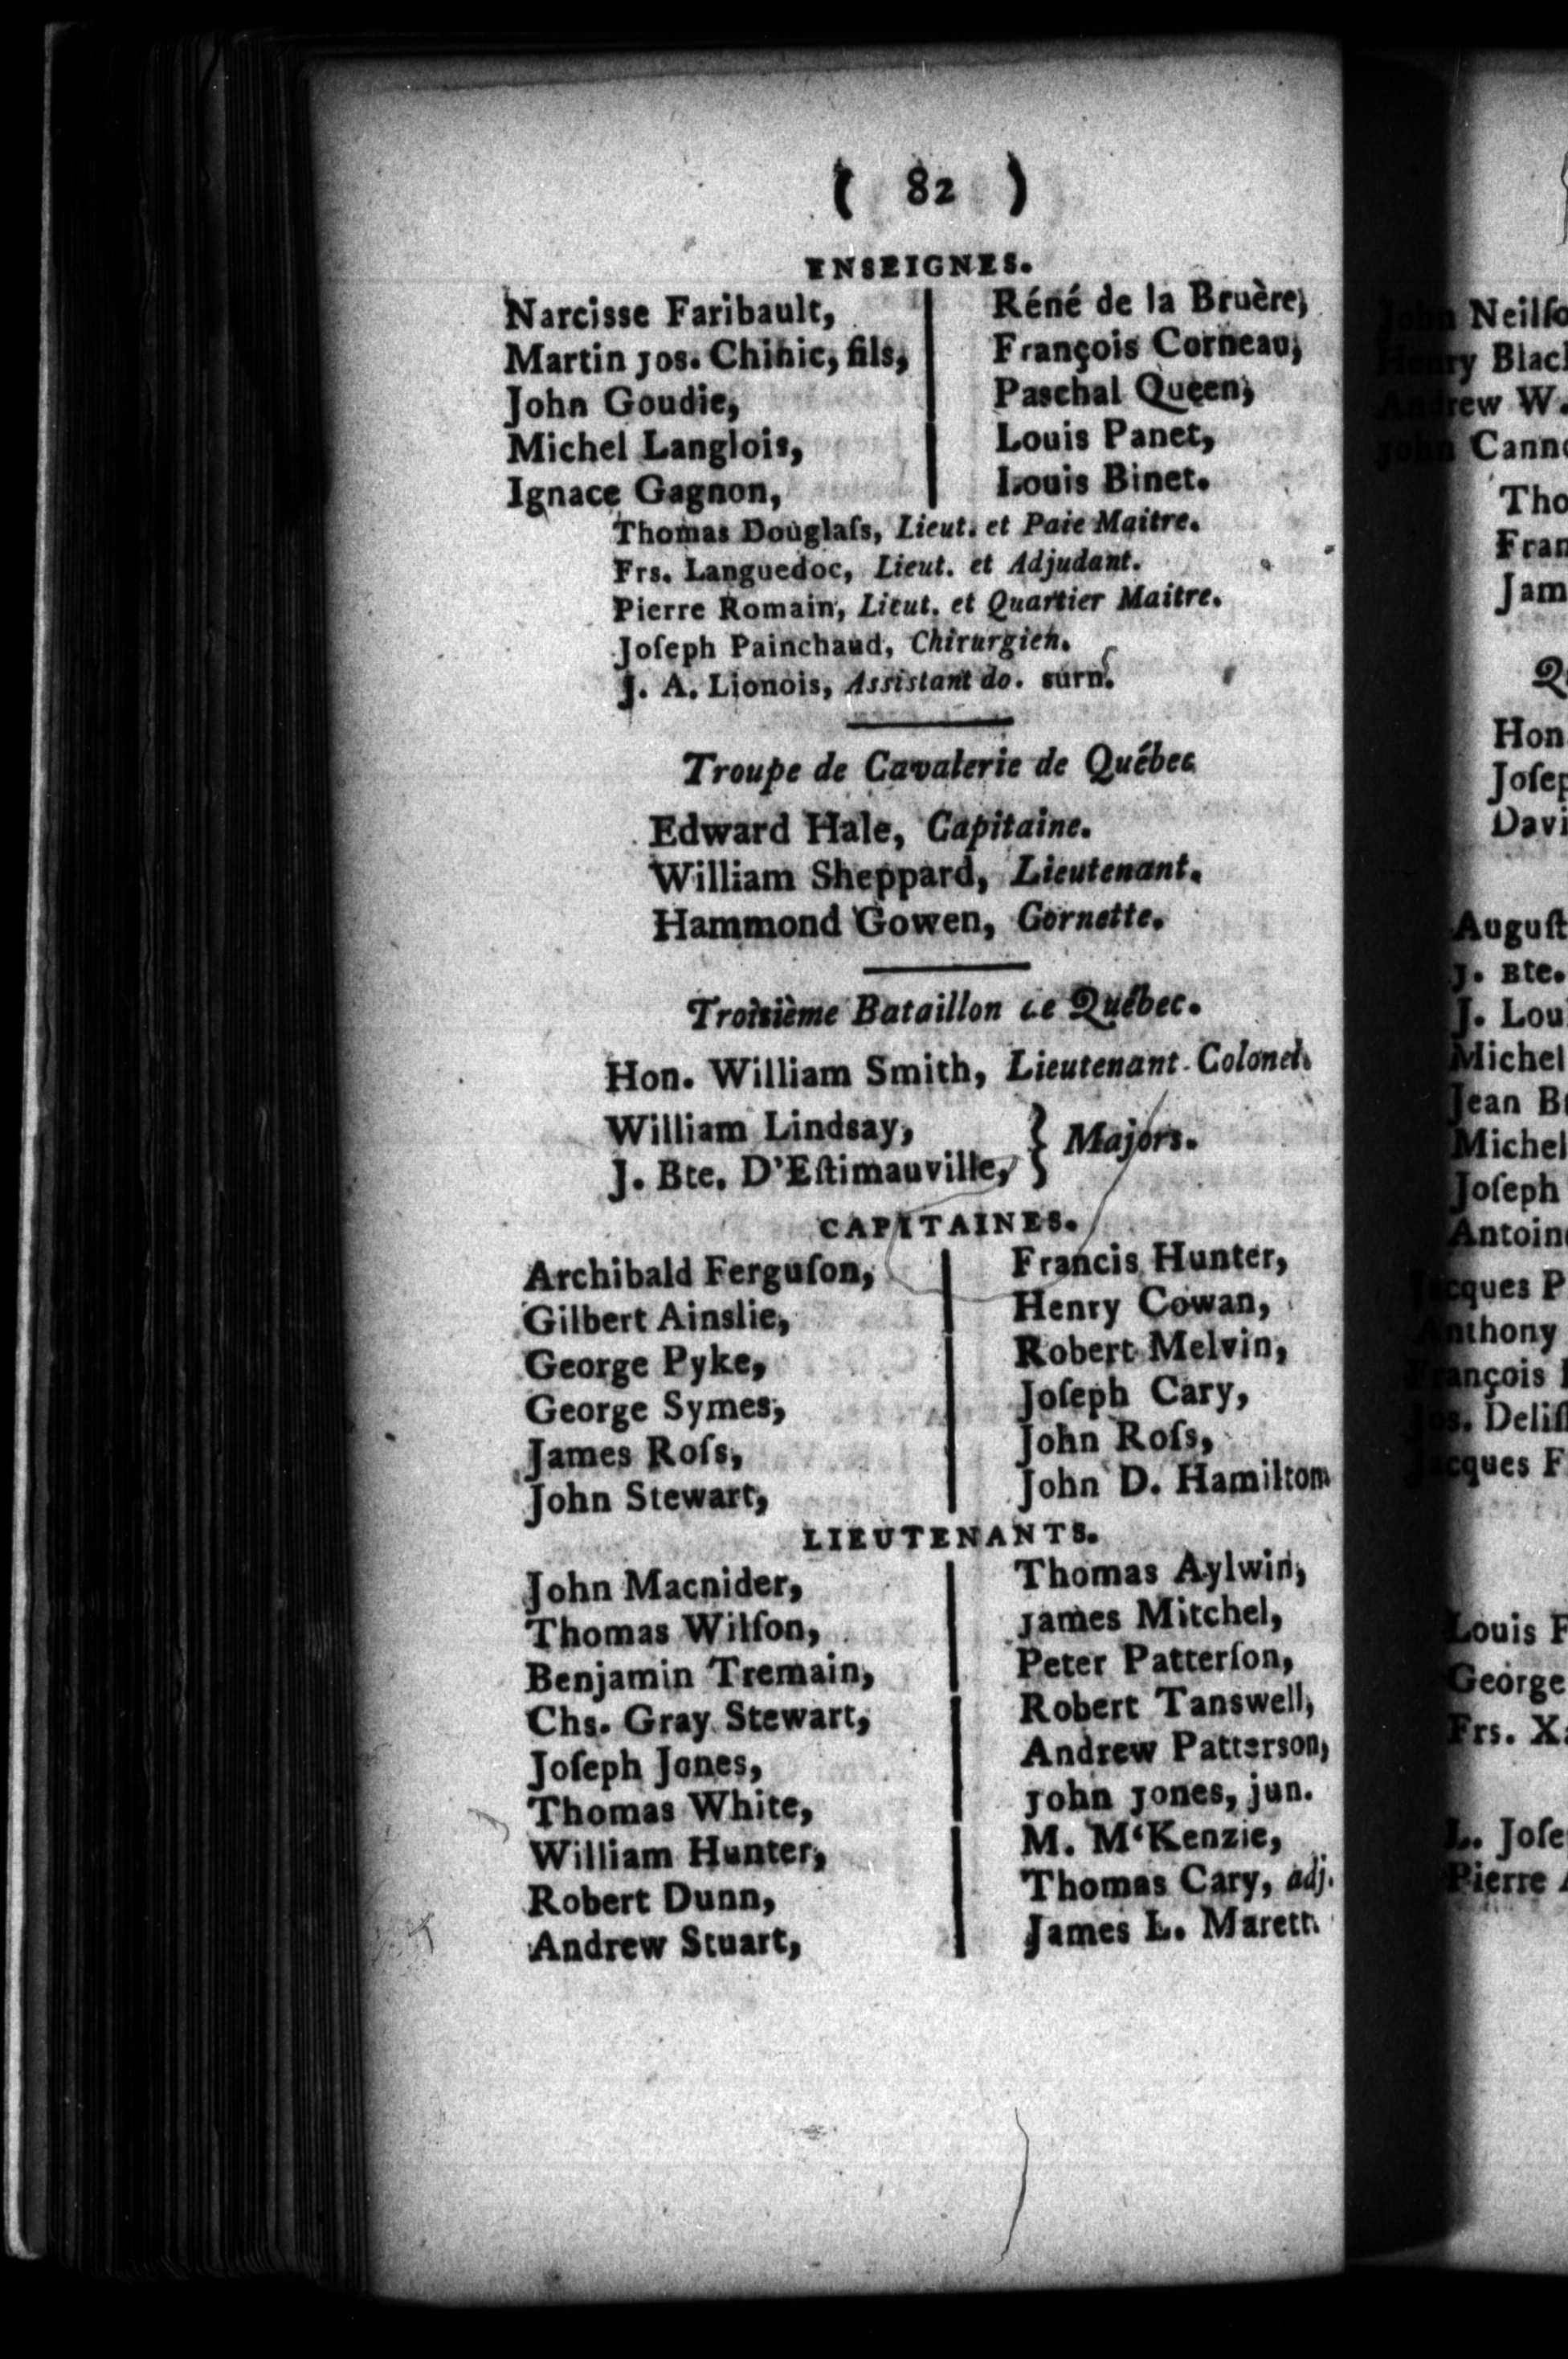 ( 82 )
ENSEIGNES.
Narcisse Faribault,
Martin Jos. Chinic, fils,
John Goudie,
Michel Langlois,
Ignace Gagnon,
Réné de la Bruère,
François Corneau,
Paschal Queen,
Louis Panet,
Louis Binet.
Thomas Douglaſs, Lieut. et Paie Maitre.
Frs. Languedoc, Lieut. et Adjudant.
Pierre Romain, Lieut. et Quartier Maitre.
Joſeph Painchaud, Chirurgien.
J. A. Lionois, Assistant do. surn.
Troupe de Cavalerie de Québec
Edward Hale, Capitaine.
William Sheppard, Lieutenant.
Hammond Gowen, Cornette.
Troisième Bataillon de Québec.
Hon. William Smith, Lieutenant-Colonel.
William Lindsay,
J. Bte. D'Eſtimauville, } Majors.
CAPITAINES.
Archibald Ferguſon,
Gilbert Ainslie,
George Pyke,
George Symes,
James Roſs,
John Stewart,
Francis Hunter,
Henry Cowan,
Robert Melvin,
Joſeph Cary,
John Roſs,
John D. Hamilton
LIEUTENANTS.
John Macnider,
Thomas Wilſon,
Benjamin Tremain,
Chs. Gray Stewart,
Joſeph Jones,
Thomas White,
William Hunter,
Robert Dunn,
Andrew Stuart,
Thomas Aylwin,
James Mitchel,
Peter Patterſon,
Robert Tanswell,
Andrew Patterson,
John Jones, jun.
M. M‘Kenzie,
Thomas Cary, adj.
James L. Marett.
John Neilſo
Henry Blac
Andrew W.
John Cann
Tho
Fran
Jam
Hon
Joſep
Davi
Auguſt
J. Bte.
J. Lou
Michel
Jean B
Michel
Joſeph
Antoin
Jacques P
Anthony
François
Jos. Deliſ
Jacques F
Louis F
George
Frs. X.
L. Joſe
Pierre